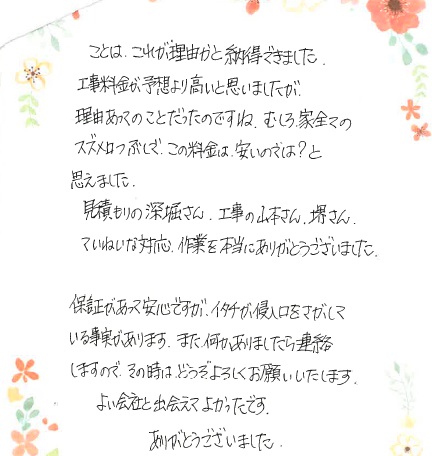 ことは、これが理由かと納得できました。
工事料金が予想より高いと思いましたが、
理由あってのことだったのですね。むしろ、家全ての
スズメロつぶしで、この料金は、安いのでは?と
思えました。
見積もりの深堀さん、工事の山本さん、堺さん、
ていねいな対応、作業を本当にありがとうございました。
保証があって安心ですが、イタチが侵入口をさがして
いる事実があります。また何かありましたら連絡
しますので、その時は、どうぞよろしくお願いいたします。
よい会社と出会えてよかったです。
ありがとうございました。